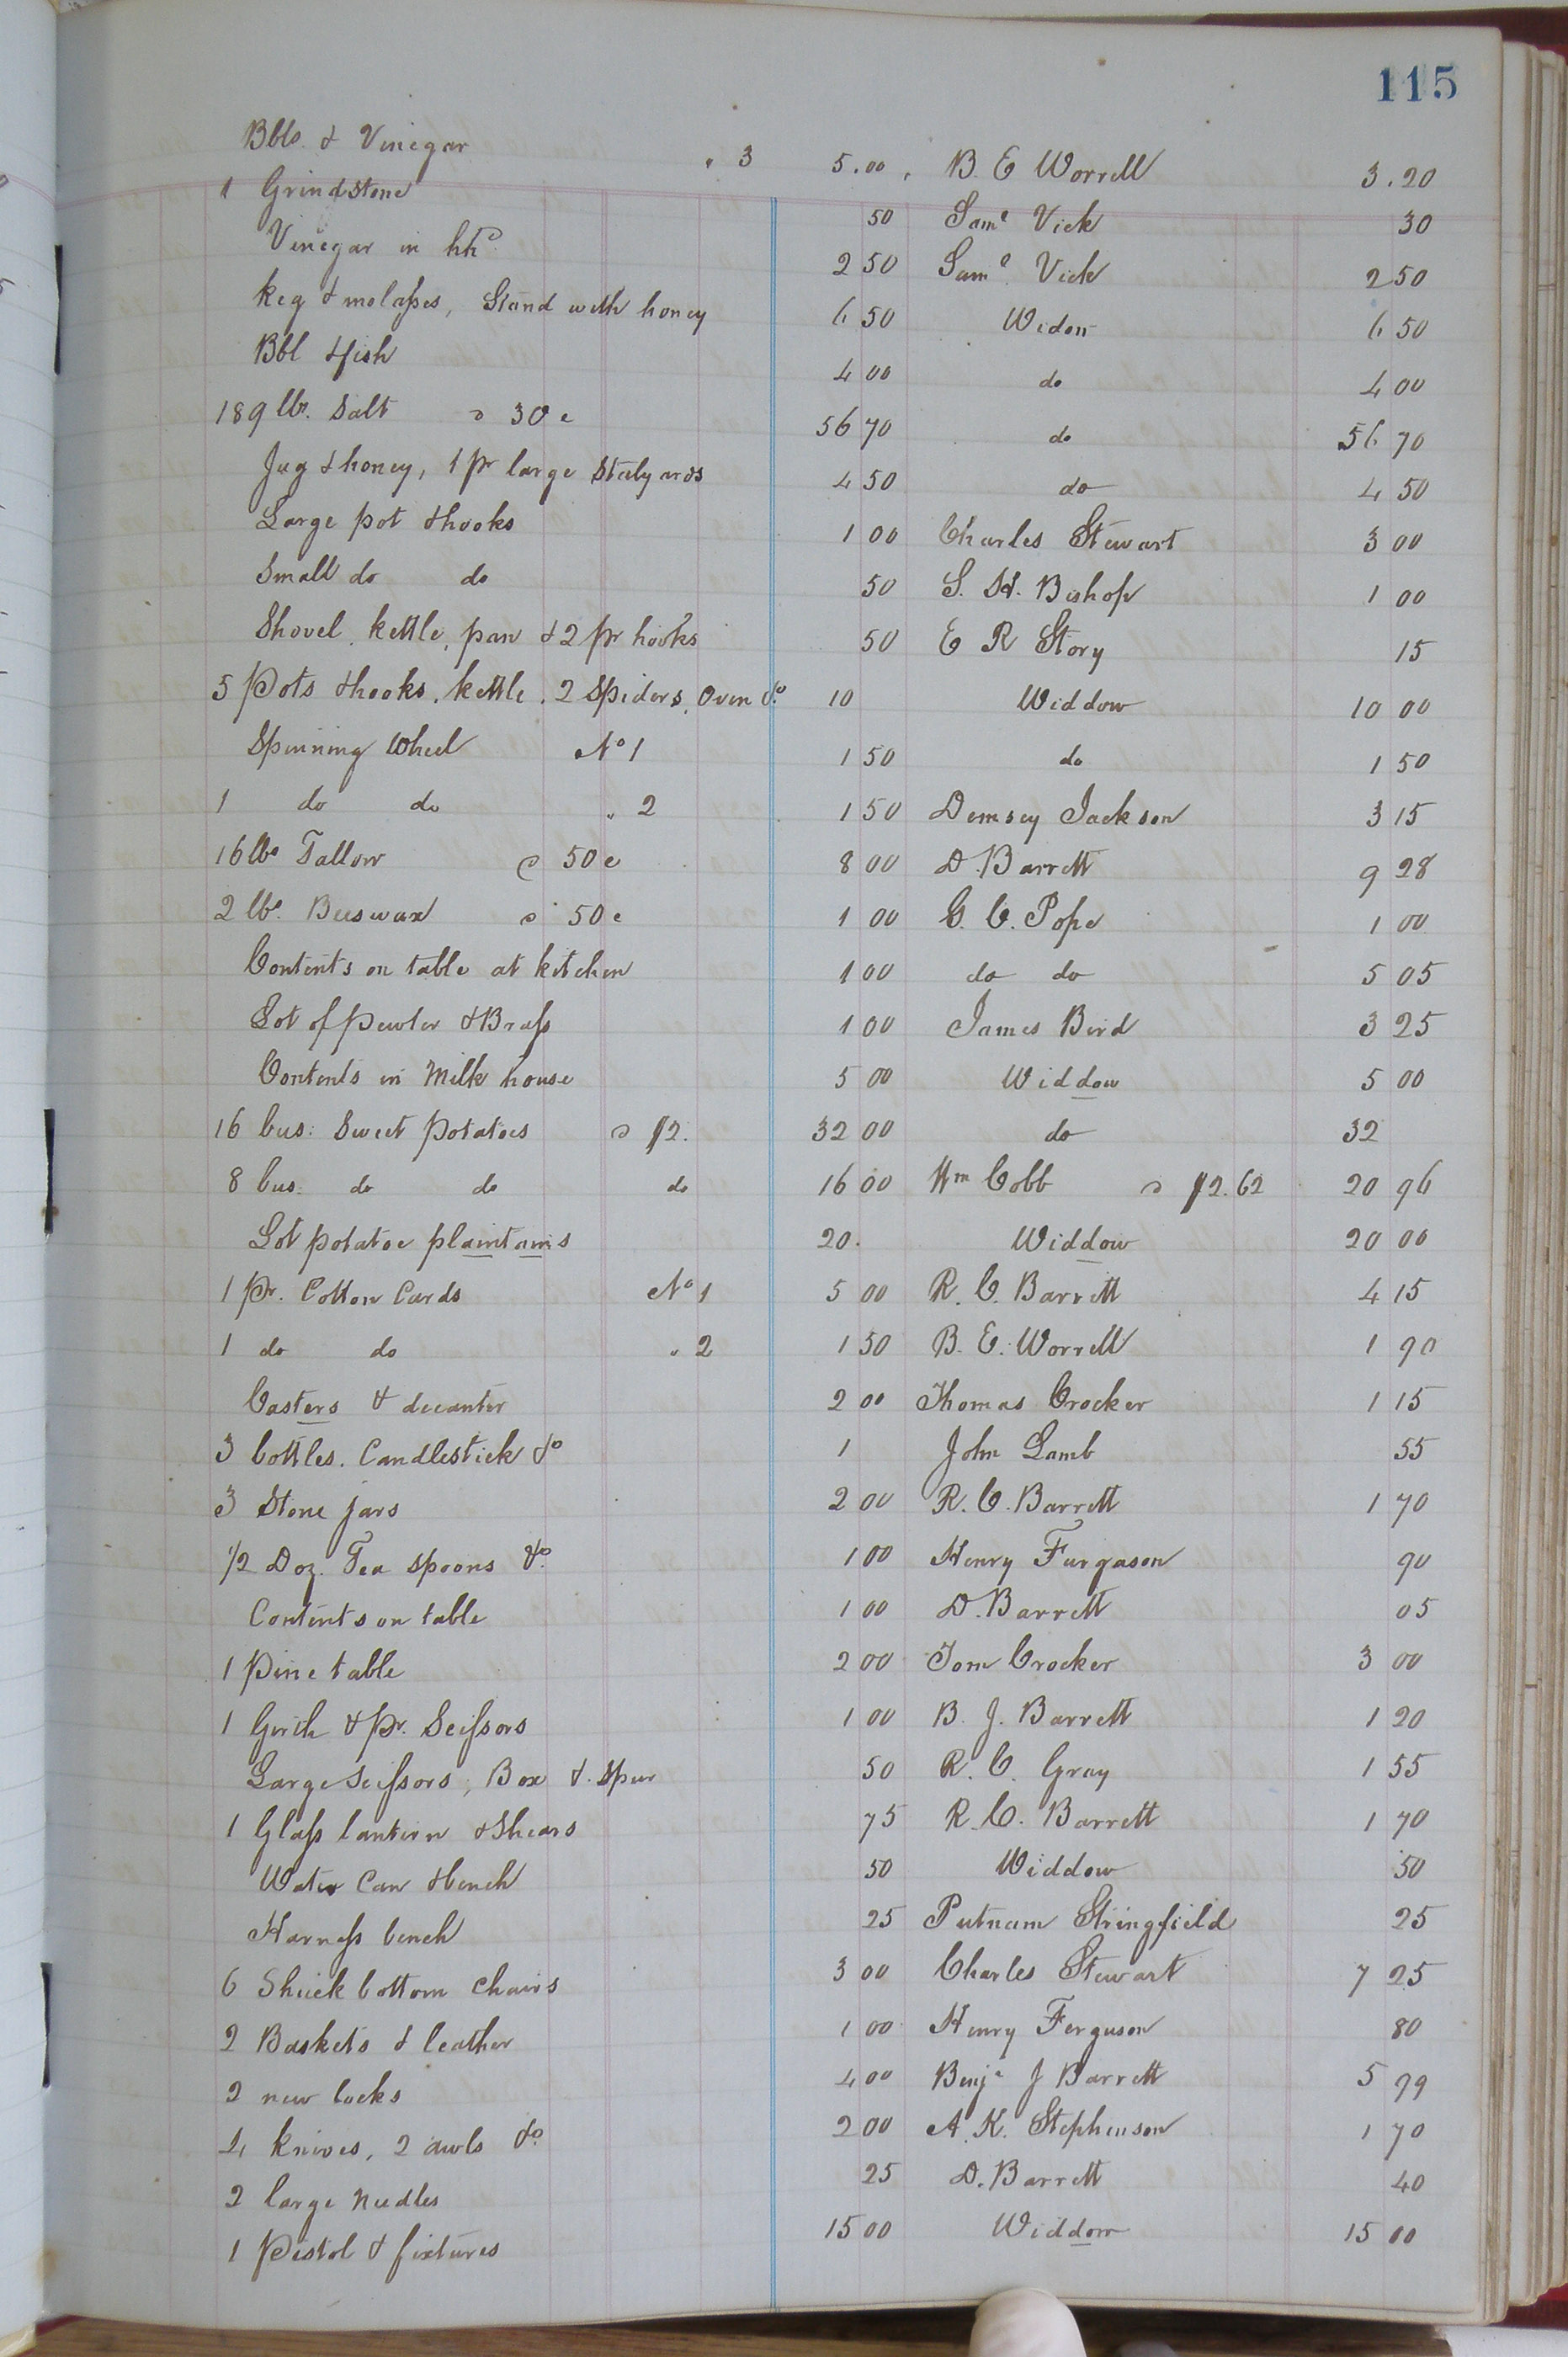 115
Bbls. & Vinegar " 3 5.00, B. E Worrell 3.20
1 Grindstone 50 Saml Vick 30
Vinegar in hhd 2 50 Saml Vick 2 50
keg & molaſses, Stand with honey 6 50 Widow 6 50
Bbl & fish 4 00 do 4 00
189 lbs. Salt @ 30c 56 70 do 56 70
Jug & honey, 1 pr large Stelyards 4 50 do 4 50
Large pot & hooks 1 00 Charles Stewart 3 00
Small do do 50 S. H. Bishop 1 00
Shovel, kettle, pan & 2 pr hooks 50 E R Story 15
5 Pots & hooks, kettle, 2 Spiders, Oven &c 10 Widdow 10 00
Spinning Wheel No 1 1 50 do 1 50
1 do do " 2 1 50 Demsey Jackson 3 15
16 lbs Tallow @ 50c 8 00 D. Barrett 9 28
2 lbs. Beeswax @ 50c 1 00 G. C. Pope 1 00
Contents on table at kitchen 1 00 do do 5 05
Lot of pewter & Braſs 1 00 James Bird 3 25
Contents in Milk house 5 00 Widdow 5 00
16 bus. Sweet Potatoes @ $2. 32 00 do 32
8 bus. do do do 16 00 Wm Cobb @ $2.62 20 96
Lot potatoe plaintains 20. Widdow 20 00
1 Pr. Cotton Cards No 1 5 00 R. C. Barrett 4 15
1 do do " 2 1 50 B. E. Worrell 1 90
Casters & decanter 2 00 Thomas Crocker 1 15
3 bottles, Candlestick &c 1 John Lamb 55
3 Stone jars 2 00 R. C. Barrett 1 70
1/2 Doz. Tea spoons &c. 1 00 Henry Furgason 90
Contents on table 1 00 D. Barrett 05
1 Pine table 2 00 Tom Crocker 3 00
1 Girth & Pr. Sciſsors 1 00 B. J. Barrett 1 20
Large Sciſsors, Box & Spur 50 R. C. Gray 1 55
1 Glaſs lantern & Shears 75 R. C. Barrett 1 70
Water Can & bench 50 Widdow 50
Harneſs bench 25 Putnam Stringfield 25
6 Shuck bottom Chairs 3 00 Charles Stewart 7 25
2 Baskets & leather 1 00 Henry Ferguson 80
2 new locks 4 00 Benja J Barrett 5 99
4 knives, 2 awls &c. 2 00 A. K. Stephenson 1 70
2 large Needles 25 D. Barrett 40
1 Pistol & fixtures 15 00 Widdow 15 00